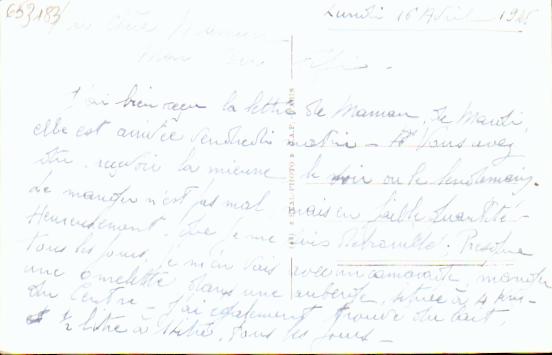 653183
Lundi 16 Avril 19
Ma Chère Maman
Mon
J'ai bien reçu la lettre de Maman, de Mardi,
elle est arrivée Vendredi matin - Vous avez
dû recevoir la mienne le soir ou le lendemain.
Le manger n'est pas mal, mais en faible quantité -
Heureusement, que je me suis débrouillé. Presque
Tous les jours, je m'en vais avec un camarade, manger
une omelette dans une auberge, située à 4
du Centre - J'ai également trouvé du lait,
1/2 litre à litre, tous les jours -
REAL-PHOTO
PARIS